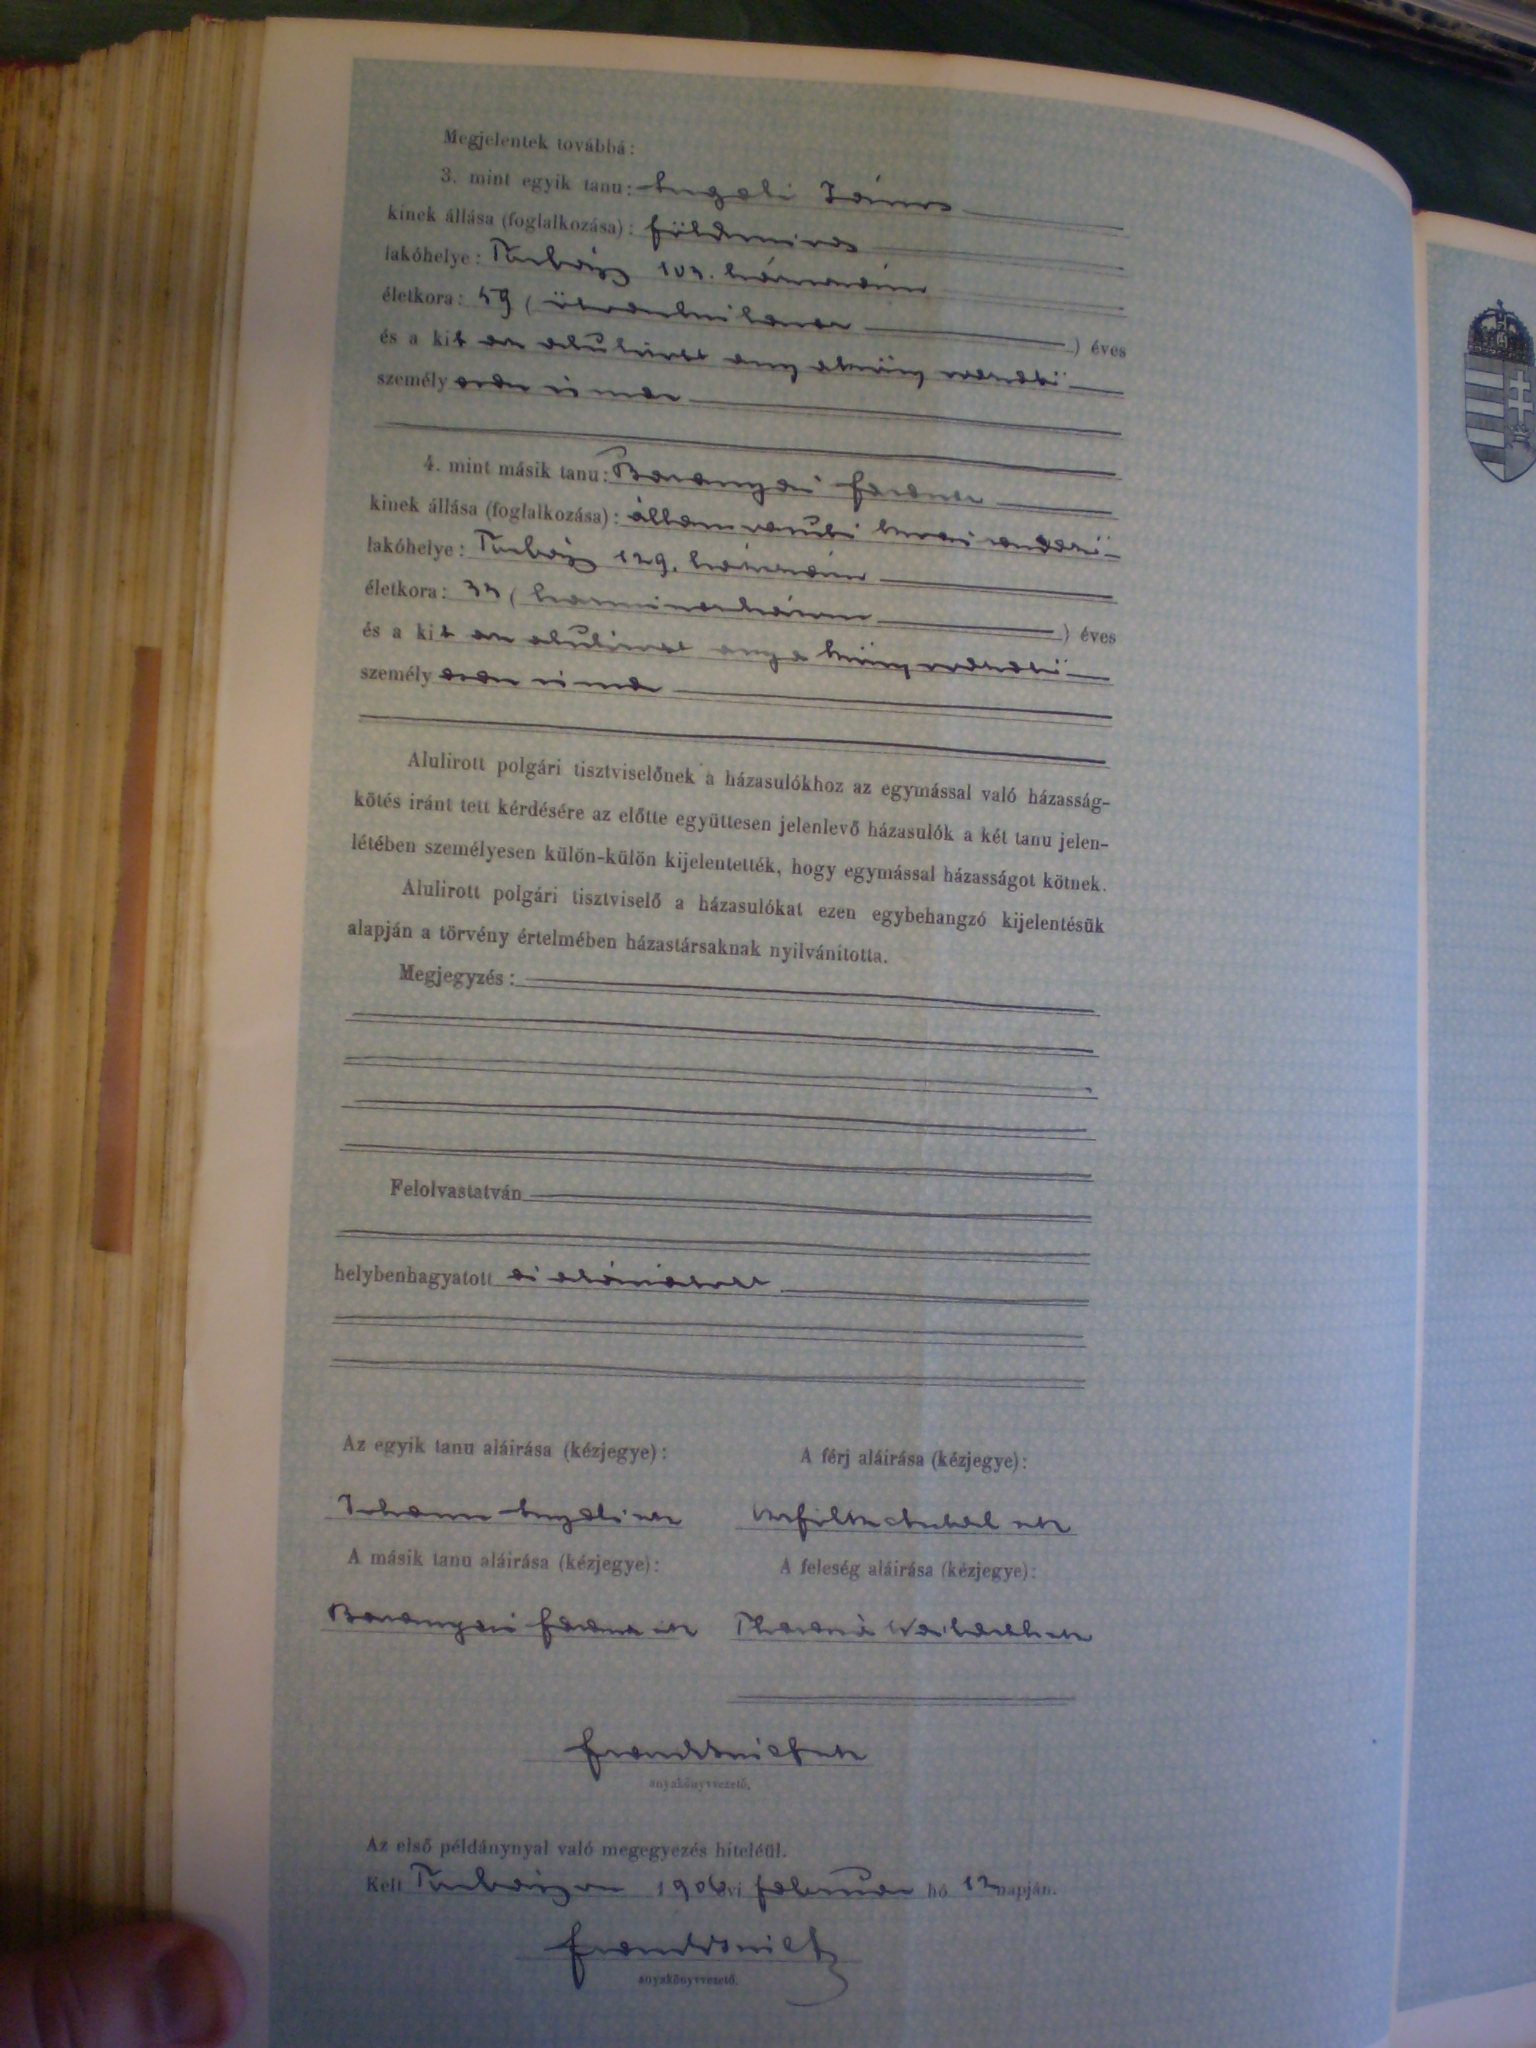 Megjelentek továbbá:
3. mint egyik tanu: Engeli János
kinek állása (foglalkozása): földmives
lakóhelye: 103. házszám
életkora: 59 ( ötvenkilenc ) éves
és a kit az alulirott anyakönyvvezető
személyesen ismer
4. mint másik tanu: Baranyai Ferencz
kinek állása (foglalkozása): államvasuti
lakóhelye: 129. házszám
életkora: 33 ( harminczhárom ) éves
és a kit az alulirott anyakönyvvezető
személyesen ismer
Alulirott polgári tisztviselőnek a házasulókhoz az egymással való házasság-
kötés iránt tett kérdésére az előtte együttesen jelenlevő házasulók a két tanu jelen-
létében személyesen külön-külön kijelentették, hogy egymással házasságot kötnek.
Alulirott polgári tisztviselő a házasulókat ezen egybehangzó kijelentésük
alapján a törvény értelmében házastársaknak nyilvánitotta.
Megjegyzés:
Felolvastatván
helybenhagyatott és aláiratott
Az egyik tanu aláirása (kézjegye):
A férj aláirása (kézjegye):
Johann Engeli
A másik tanu aláirása (kézjegye):
A feleség aláirása (kézjegye):
Baranyai Ferencz
anyakönyvvezető.
Az első példánynyal való megegyezés hiteléül.
Kelt 1906 évi február hó 13 napján.
anyakönyvvezető.